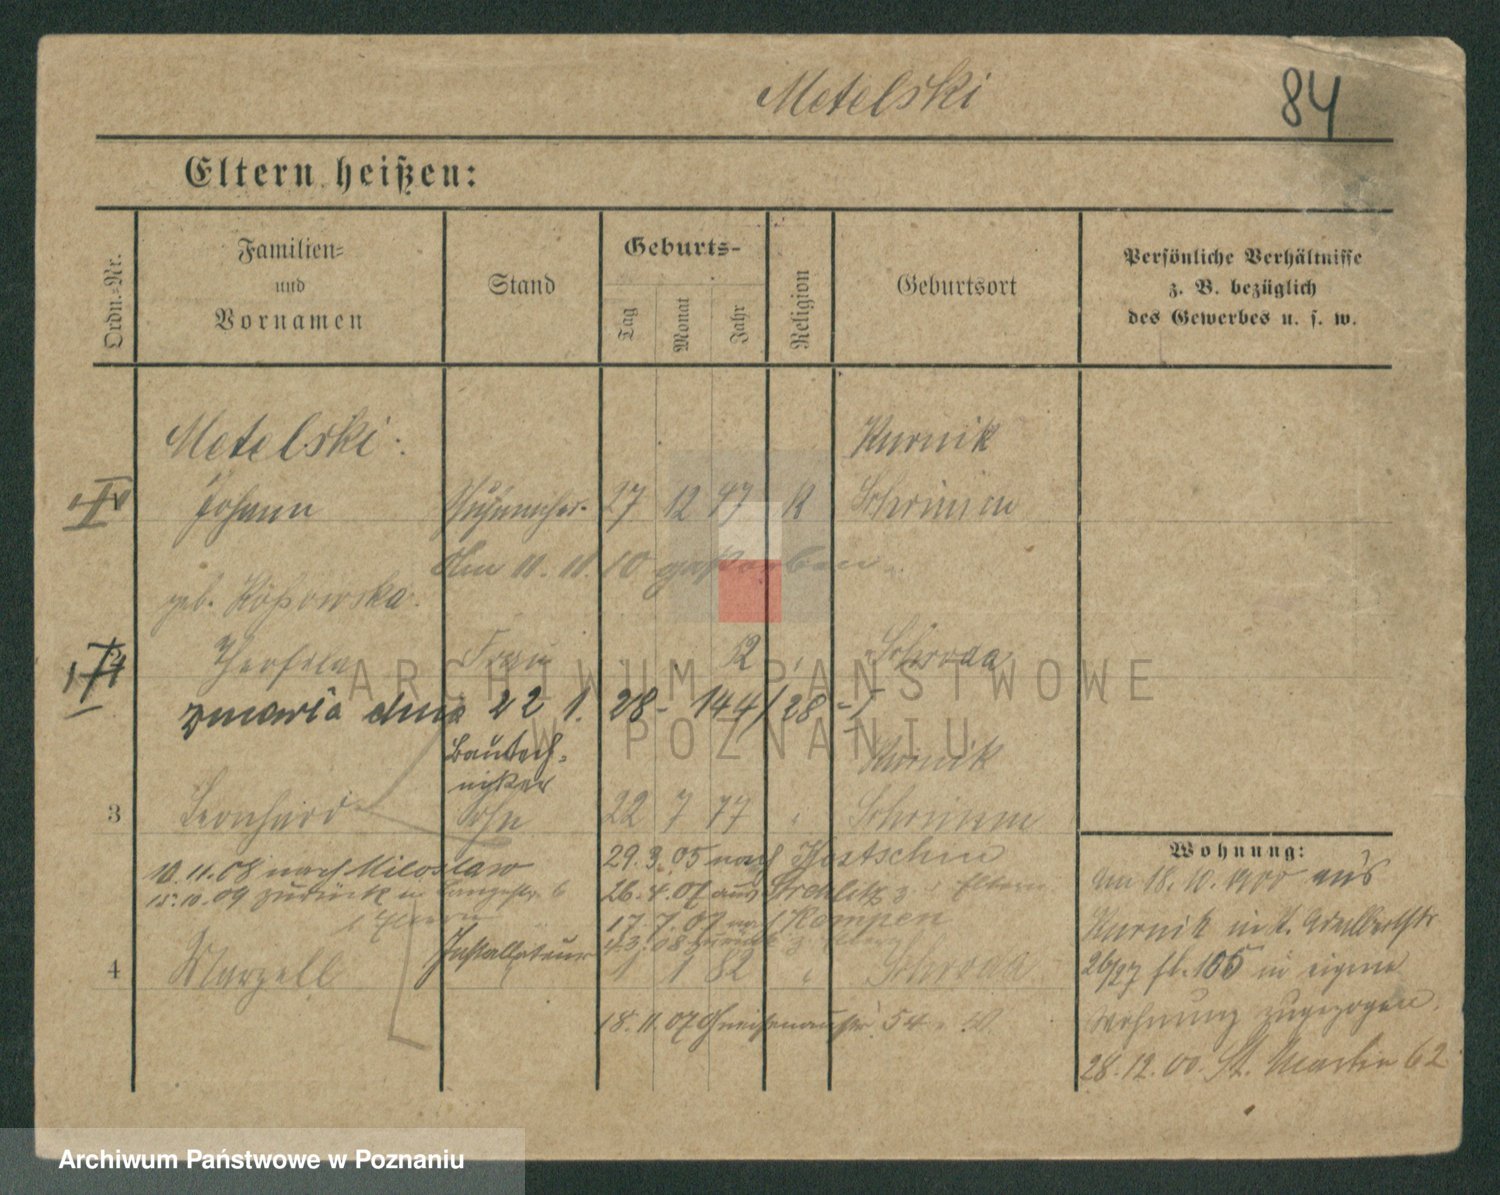 Metelski
84
Eltern heißen:
Ordn.-Nr.
Familien-
und
Vornamen
Stand
Geburts-
Tag
Monat
Jahr
Religion
Geburtsort
Persönliche Verhältnisse
z. B. bezüglich
des Gewerbes u. s. w.
Metelski.
Kurnik
Johann
27 12 47 K
Schrimm
Am 11. 11. 10 gestorben
geb.
Frau
52
Schroda
ARCHIWUM PAŃSTWOWE
zmarła dnia 22 1. 28 - 144/28 -
W POZNANIU
Bautech-
niker
Kurnik
3 Leonhard Sohn 22 7 77 Schrimm
Wohnung:
10.11.08 nach Miloslaw
29.3.05 nach
am 18.10.1900 aus
15.10.09 zurück
26.4.07 aus
Eltern
17.7.07 Kempen
Kurnik in St. Adalbertstr
4.3.08 zurück z. Eltern
4 Marzell Installateur 1 1 82 Schroda
26/27 fl. 105 in eigene
Wohnung zugezogen.
18.11.07 Gneisenaustr 54
28.12.00. St. Martin 62
Archiwum Państwowe w Poznaniu